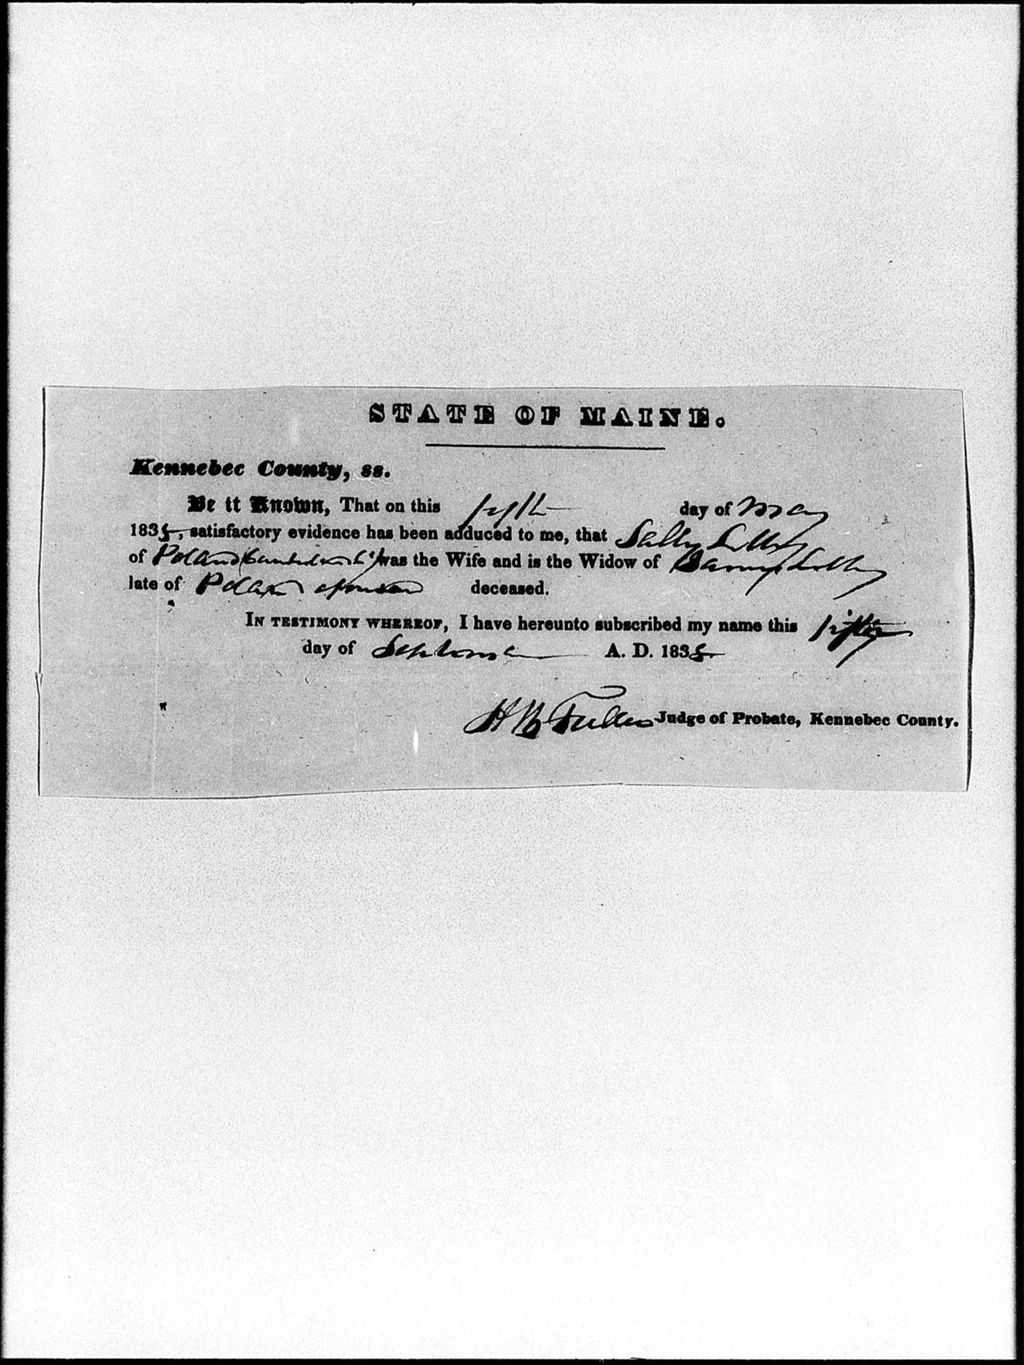 STATE OF MAINE.
Kennebec County, ss.
Be it Known, That on this fifth day of May
183, satisfactory evidence has been adduced to me, that Sally
of Poland was the Wife and is the Widow of
late of Poland deceased.
IN TESTIMONY WHEREOF, I have hereunto subscribed my name this fifth
day of September A. D. 183
Fuller Judge of Probate, Kennebec County.